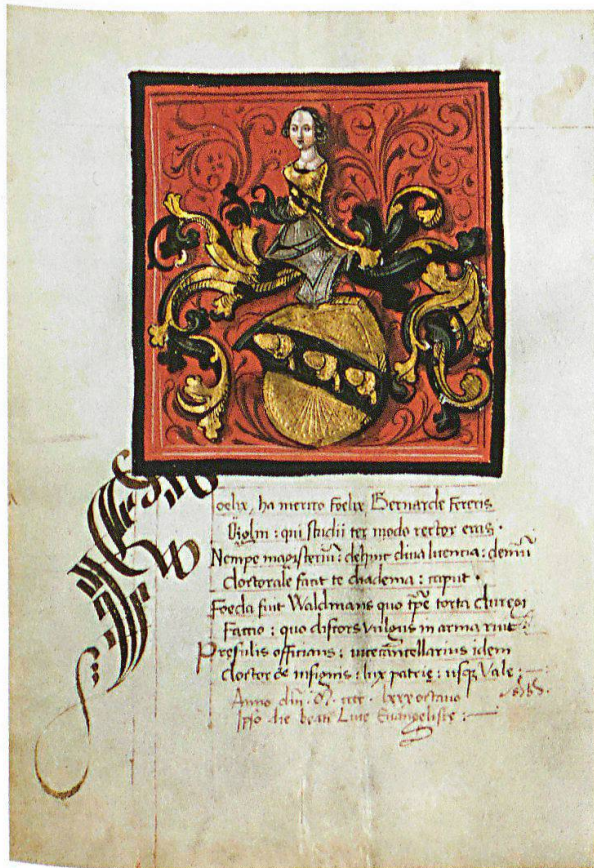 Foelix, ha merito foelix, Bernarde fereris
: qui studii ter modo rector eras .
Nempe magisteriu : dehinc diva licencia : demu
doctorale facit te diadema : caput .
Foeda fuit Waldmans quo tpe torta
Factio : quo discors vulgus in arma ruit
Presulis officians : vicecancellarius idem
doctor & insignis : lux patrię : usq Vale :
Anno dni . . cccc . lxxx octavo
Ipso die beati Luce Evangelistę :